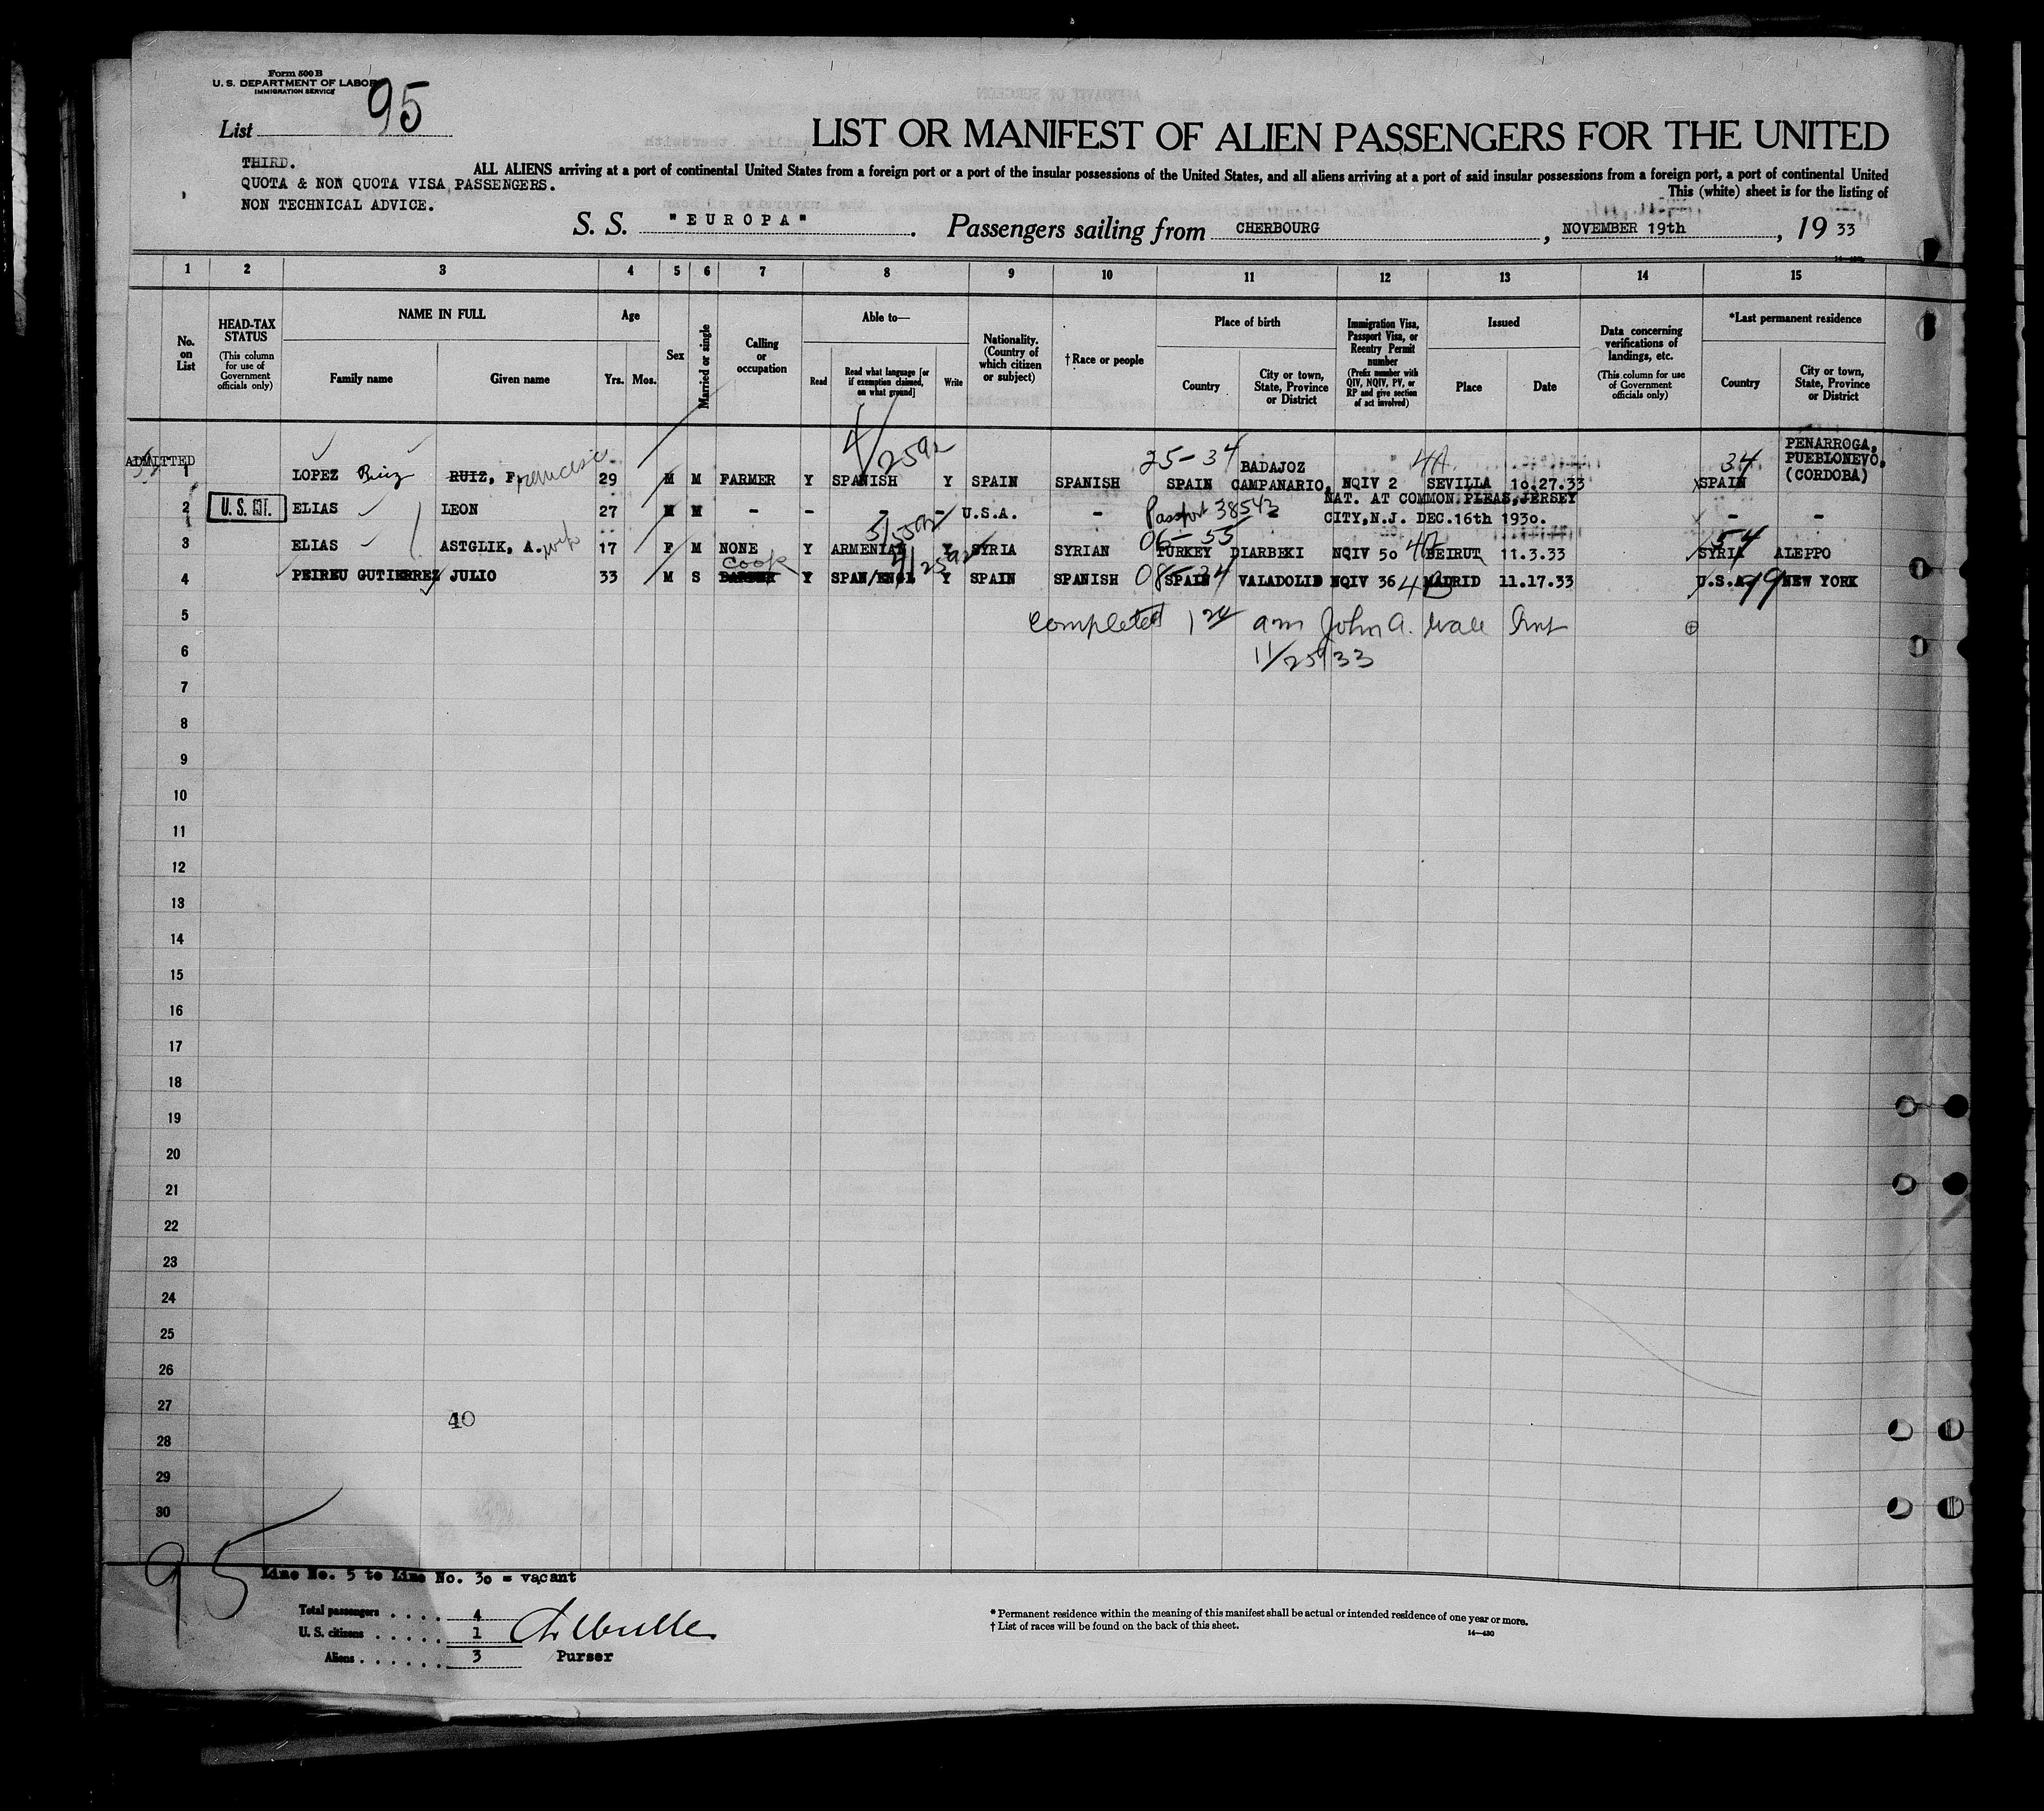 Form 500 B
U. S. DEPARTMENT OF LABOR
IMMIGRATION SERVICE
List 95
LIST OR MANIFEST OF ALIEN PASSENGERS FOR THE UNITED
THIRD.
QUOTA & NON QUOTA VISA PASSENGERS.
NON TECHNICAL ADVICE.
ALL ALIENS arriving at a port of continental United States from a foreign port or a port of the insular possessions of the United States, and all aliens arriving at a port of said insular possessions from a foreign port, a port of continental United
This (white) sheet is for the listing of
S. S. "EUROPA". Passengers sailing from CHERBOURG, NOVEMBER 19th, 19 33
1 2 3 4 5 6 7 8 9 10 11 12 13 14 15
No. on List
HEAD-TAX STATUS (This column for use of Government officials only)
NAME IN FULL
Family name
Given name
Age
Yrs. Mos.
Sex
Married or single
Calling or occupation
Able to—
Read
Read what language [or if exemption claimed, on what ground]
Write
Nationality. (Country of which citizen or subject)
†Race or people
Place of birth
Country
City or town, State, Province or District
Immigration Visa, Passport Visa, or Reentry Permit number (Prefix number with QIV, NQIV, PV, or RP and give section of act involved)
Issued
Place
Date
Data concerning verifications of landings, etc. (This column for use of Government officials only)
*Last permanent residence
Country
City or town, State, Province or District
ADMITTED
4/2592 25-34 4A 34
1 LOPEZ Ruiz RUIZ, Francisco 29 M M FARMER Y SPANISH Y SPAIN SPANISH SPAIN BADAJOZ CAMPANARIO, NQIV 2 SEVILLA 10.27.33 SPAIN PENARROGA, PUEBLONEVO, (CORDOBA)
2 U.S. CIT. ELIAS LEON 27 M M - - - - U.S.A. - Passport 38543 NAT. AT COMMON PLEAS, JERSEY CITY, N.J. DEC.16th 1930. - -
06-55 54
3 ELIAS ASTGLIK, A. wife 17 F M NONE Y ARMENIAN Y SYRIA SYRIAN TURKEY DIARBEKI NQIV 50 BEIRUT 11.3.33 SYRIA ALEPPO
Cook 4/2592
4 PEIREU GUTIERREZ JULIO 33 M S Y SPAN/ENGL Y SPAIN SPANISH 08-34 SPAIN VALADOLID NQIV 36 4B MADRID 11.17.33 U.S.A. 99 NEW YORK
5 completed am John A.
6 11/25/33
7
8
9
10
11
12
13
14
15
16
17
18
19
20
21
22
23
24
25
26
27
40
28
29
30
95
Line No. 5 to Line No. 30 = vacant
Total passengers . . . . 4
U. S. citizens . . . . . 1
Aliens . . . . . . 3
Purser
* Permanent residence within the meaning of this manifest shall be actual or intended residence of one year or more.
† List of races will be found on the back of this sheet.
14—430